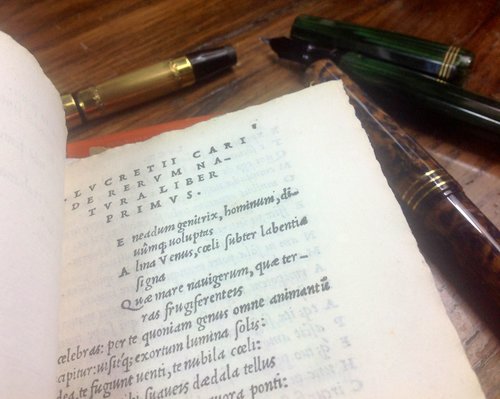 LVCRETII CARI
DE RERVM NA–
TVRA LIBER
PRIMVS.
E neadum genitrix, hominum, di–
uûmq; uoluptas
A lma Venus, cœli subter labentia
signa
Quæ mare nauigerum, quæ ter–
ras frugiferenteis
celebras: per te quoniam genus omne animantũ
cipitur: uisitq; exortum lumina solis:
dea, te fugiunt uenti, te nubila cœli:
bi suaueis dædala tellus
quora ponti: